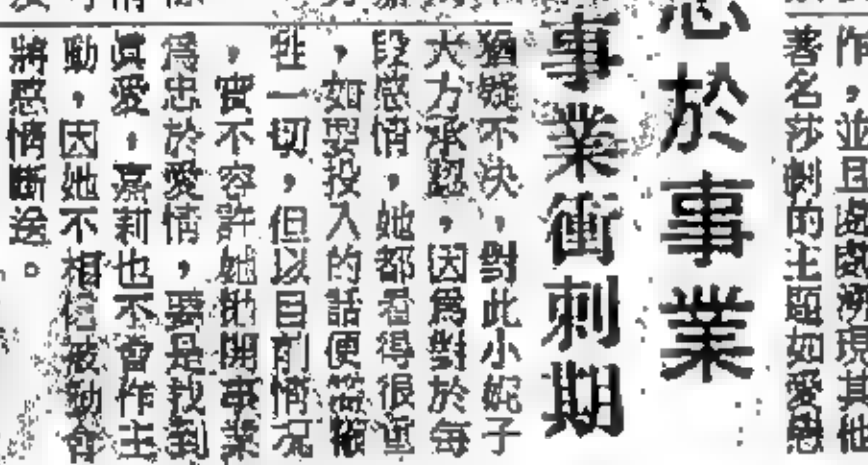 作，並且處處發現其他
著名莎劇的主題如愛戀
忠於事業
事業衝刺期
猶疑不決，對此小妮子
大方承認，因為對於每
段感情，她都看得很重
，如要投入的話便需犧
牲一切，但以目前情況
，實不容許她拋開事業
為忠於愛情，要是找到
眞愛，嘉莉也不會作主
動，因她不相信被動會
將感情斷送。